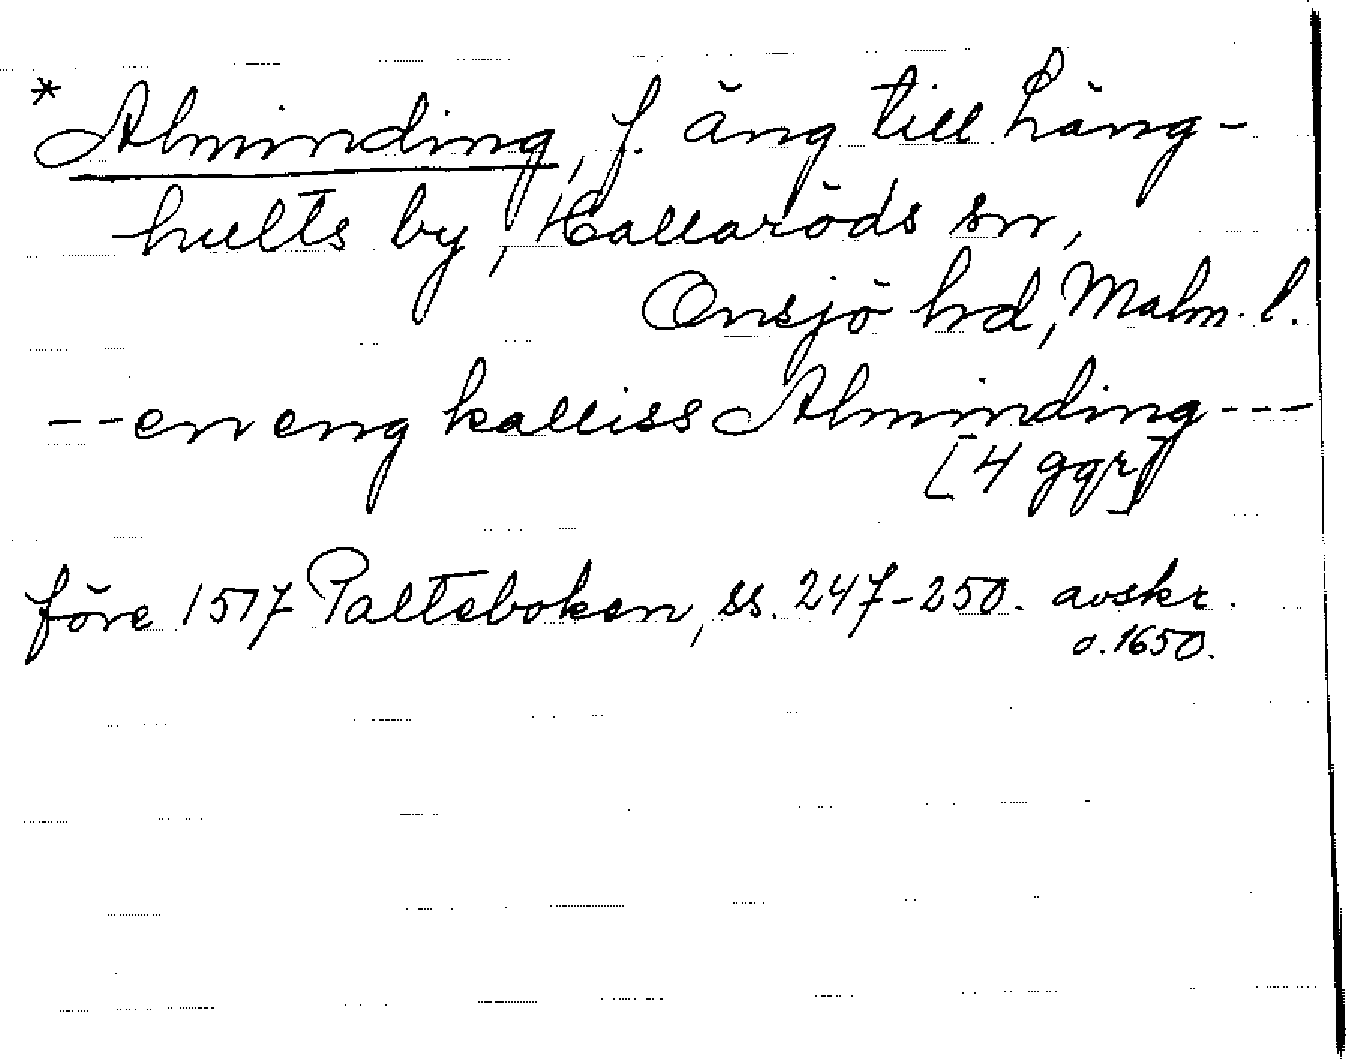 * Alminding, f. äng till Häng-
hults by, Hallaröds sn,
Onsjö hd, Malm. l.
--en eng kalliss Alminding---
[4 ggr]
före 1517 Palteboken, ss. 247-250. avskr.
o. 1650.